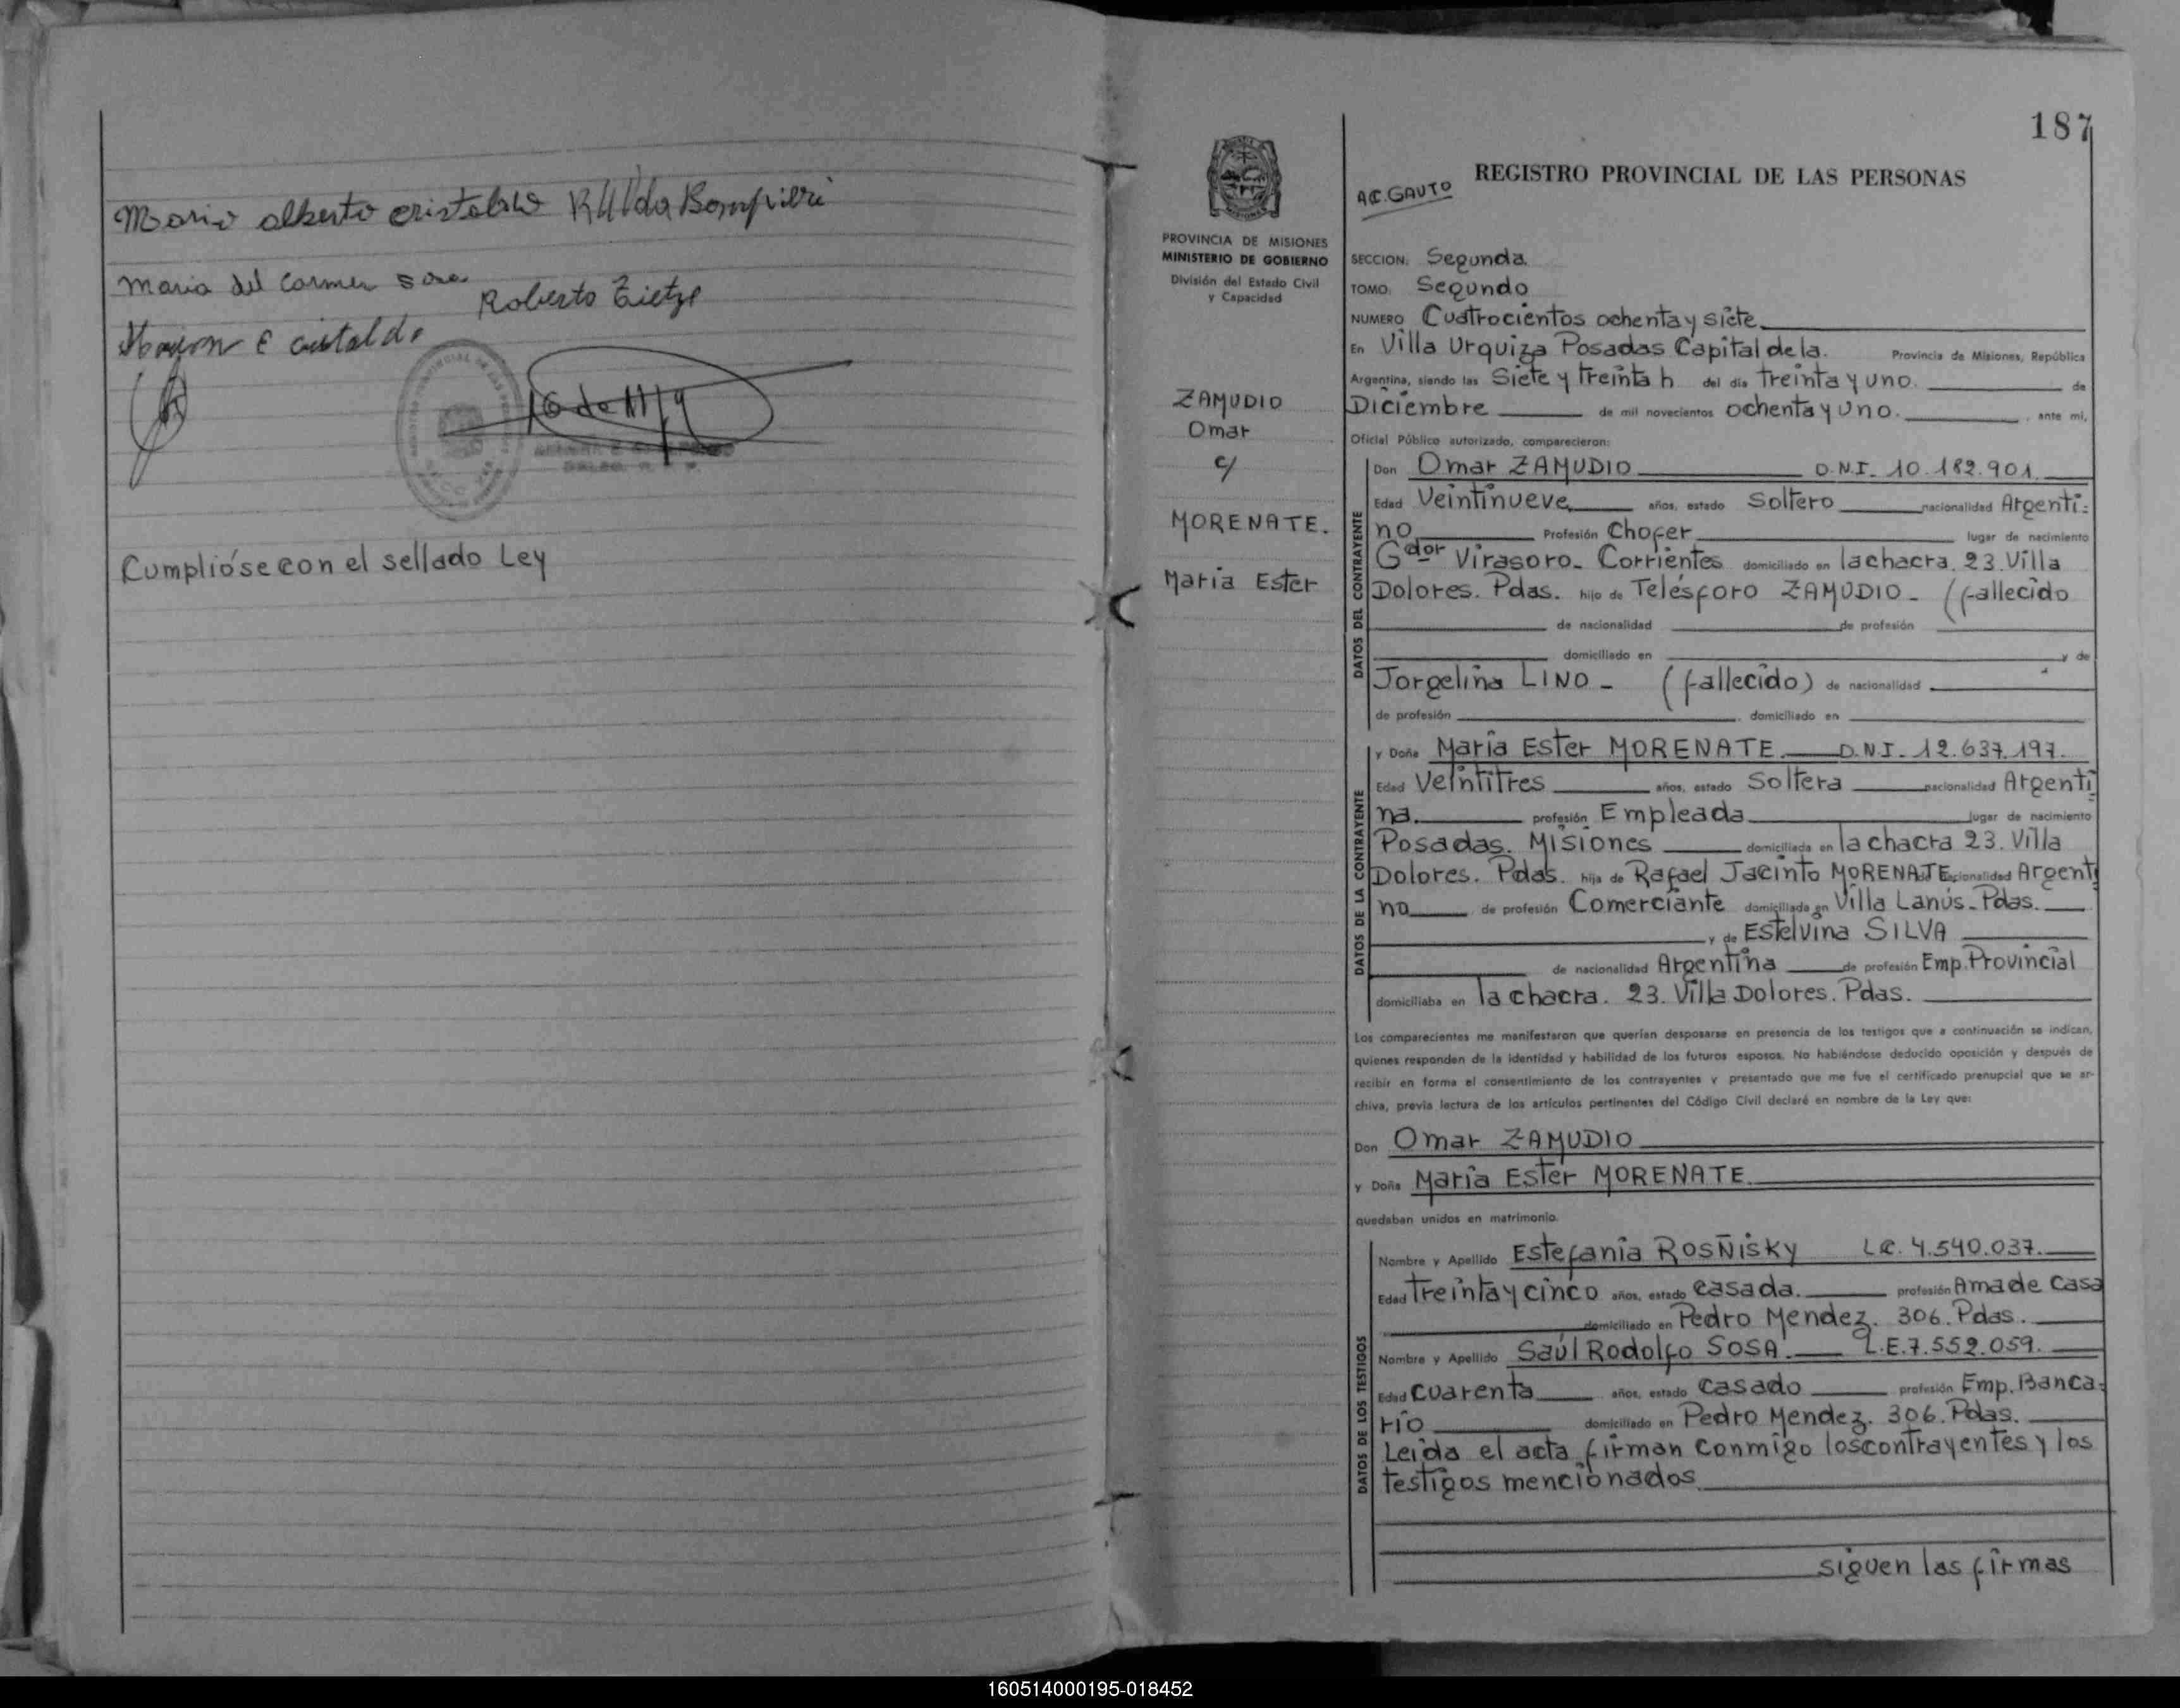 Mario alberto cristaldo
Maria del Carmen Sosa
Roberto Tietze
Cumplióse con el sellado Ley
187
REGISTRO PROVINCIAL DE LAS PERSONAS
AC. GAUTO
PROVINCIA DE MISIONES
MINISTERIO DE GOBIERNO
División del Estado Civil
y Capacidad
ZAMUDIO
Omar
c/
MORENATE.
Maria Ester
SECCION: Segunda.
TOMO: Segundo
NUMERO Cuatrocientos ochenta y siete
En Villa Urquiza Posadas Capital de la. Provincia de Misiones, República
Argentina, siendo las Siete y treinta h del día treinta y uno. de
Diciembre de mil novecientos ochenta y uno. , ante mí,
Oficial Público autorizado, comparecieron:
DATOS DEL CONTRAYENTE
Don Omar ZAMUDIO D.N.I. 10.182.901
Edad Veintinueve años, estado Soltero nacionalidad Argenti-
no Profesión Chofer lugar de nacimiento
Gdor Virasoro - Corrientes domiciliado en la chacra. 23. Villa
Dolores. Pdas. hijo de Telésforo ZAMUDIO - (fallecido
de nacionalidad de profesión
domiciliado en y de
Jorgelina LINO - (fallecido) de nacionalidad
de profesión domiciliado en
DATOS DE LA CONTRAYENTE
y Doña María Ester MORENATE. D.N.I. 12.637.197.
Edad Veintitres años, estado Soltera nacionalidad Argenti
na. profesión Empleada lugar de nacimiento
Posadas. Misiones domiciliada en la chacra 23. Villa
Dolores. Pdas. hija de Rafael Jacinto MORENATE nacionalidad Argenti
no de profesión Comerciante domiciliada en Villa Lanús - Pdas.
y de Estelvina SILVA
de nacionalidad Argentina de profesión Emp. Provincial
domiciliaba en la chacra. 23. Villa Dolores. Pdas.
Los comparecientes me manifestaron que querían desposarse en presencia de los testigos que a continuación se indican,
quienes responden de la identidad y habilidad de los futuros esposos. No habiéndose deducido oposición y después de
recibir en forma el consentimiento de los contrayentes y presentado que me fue el certificado prenupcial que se ar-
chiva, previa lectura de los artículos pertinentes del Código Civil declaré en nombre de la Ley que:
Don Omar ZAMUDIO
y Doña María Ester MORENATE.
quedaban unidos en matrimonio.
DATOS DE LOS TESTIGOS
Nombre y Apellido Estefania ROSÑISKY L.C. 4.540.037.
Edad treinta y cinco años, estado casada. profesión Ama de Casa
domiciliado en Pedro Mendez. 306. Pdas.
Nombre y Apellido Saúl Rodolfo SOSA. L.E. 7.552.059.
Edad cuarenta años, estado casado profesión Emp. Banca-
rio domiciliado en Pedro Mendez. 306. Pdas.
Leida el acta firman conmigo los contrayentes y los
testigos mencionados.
siguen las firmas
160514000195-018452